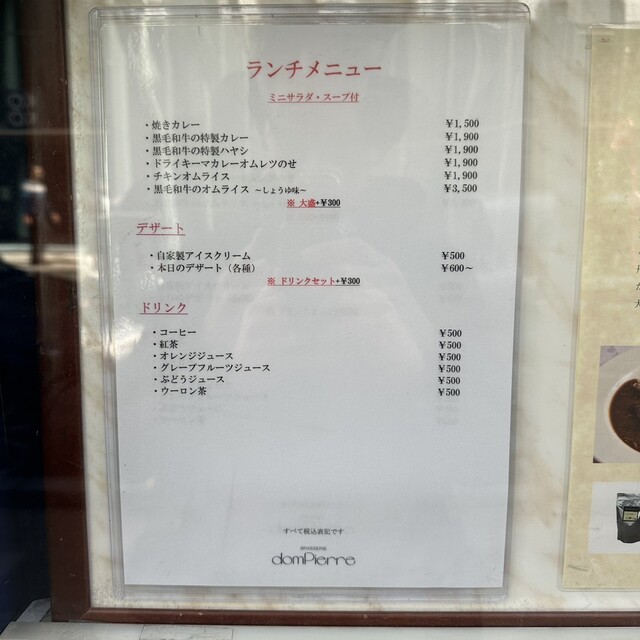 ランチメニュー
ミニサラダ・スープ付
・焼きカレー ￥1,500
・黒毛和牛の特製カレー ￥1,900
・黒毛和牛の特製ハヤシ ￥1,900
・ドライキーマカレーオムレツのせ ￥1,900
・チキンオムライス ￥1,900
・黒毛和牛のオムライス ～しょうゆ味～ ￥3,500
※ 大盛+￥300
デザート
・自家製アイスクリーム ￥500
・本日のデザート（各種） ￥600～
※ ドリンクセット+￥300
ドリンク
・コーヒー ￥500
・紅茶 ￥500
・オレンジジュース ￥500
・グレープフルーツジュース ￥500
・ぶどうジュース ￥500
・ウーロン茶 ￥500
すべて税込表記です
BRASSERIE
domPierre